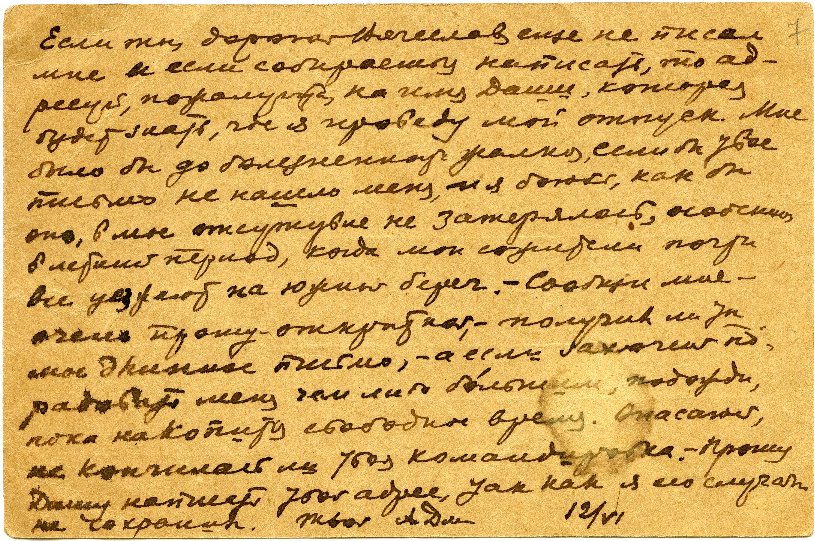 Если ты, дорогой Вячеслав, еще не писал
мне и если собираешься написать, то ад-
ресуй, пожалуйста, на имя Даши, которая
будет знать, где я проведу мой отпуск. Мне
было бы до болезненности жалко, если бы твое
письмо не нашло меня, и я боюсь, как бы
оно, в мое отсутствие не затерялось, особенно
в летний период, когда мои сожители почти
все уезжают на южный берег. - Сообщи мне -
очень прошу - открыткой, - получил ли ты
мое длинное письмо, - а если захочешь по-
радовать меня чем либо бо́льшим, подожди,
пока накопится свободное время. Опасаюсь,
не кончилась ли твоя командировка. - Прошу
Дашу написать твой адрес, так как я его случайно
не сохранил. Твой 12/VI
7